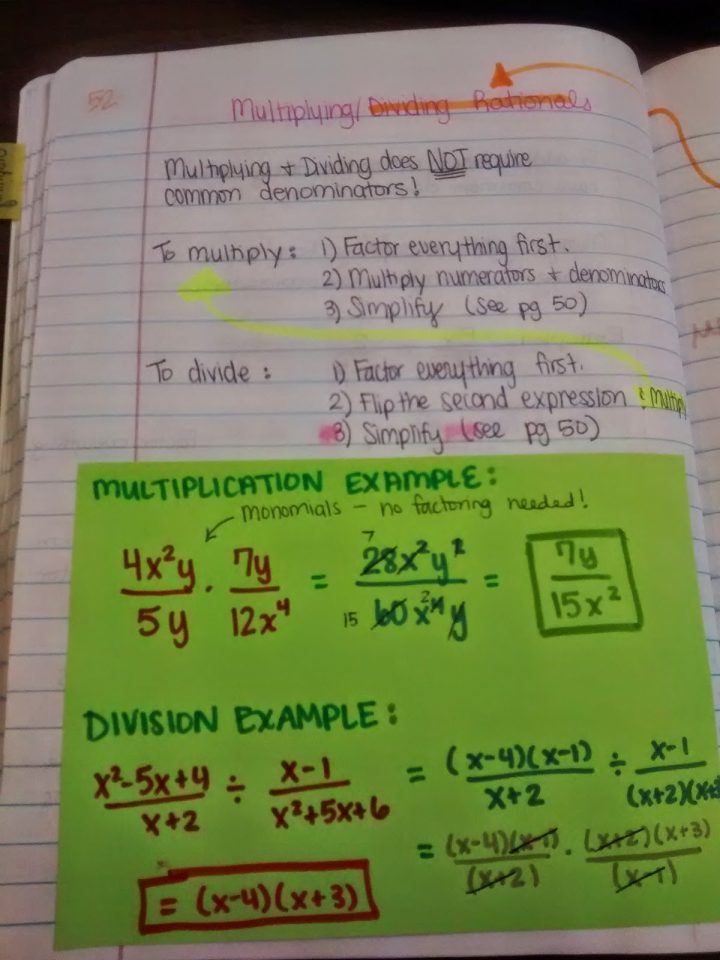 52
Multiplying/Dividing Rationals
Multiplying + Dividing does NOT require
common denominators!
To multiply: 1) Factor everything first.
2) Multiply numerators + denominators
3) Simplify (see pg 50)
To divide: 1) Factor everything first.
2) Flip the second expression & multiply
3) Simplify (see pg 50)
MULTIPLICATION EXAMPLE:
monomials - no factoring needed!
4x²y/5y · 7y/12x⁴ = 7 28x²y²/15 60x²⁴y = 7y/15x²
DIVISION EXAMPLE:
x²-5x+4/x+2 ÷ x-1/x²+5x+6 = (x-4)(x-1)/x+2 ÷ x-1/(x+2)(x+3
= (x-4)(x-1)/(x+2) · (x+2)(x+3)/(x-1)
= (x-4)(x+3)